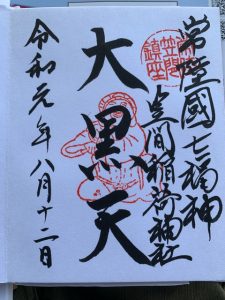 常陸國七福神
笠間稲荷神社
大黒天
令和元年八月十二日